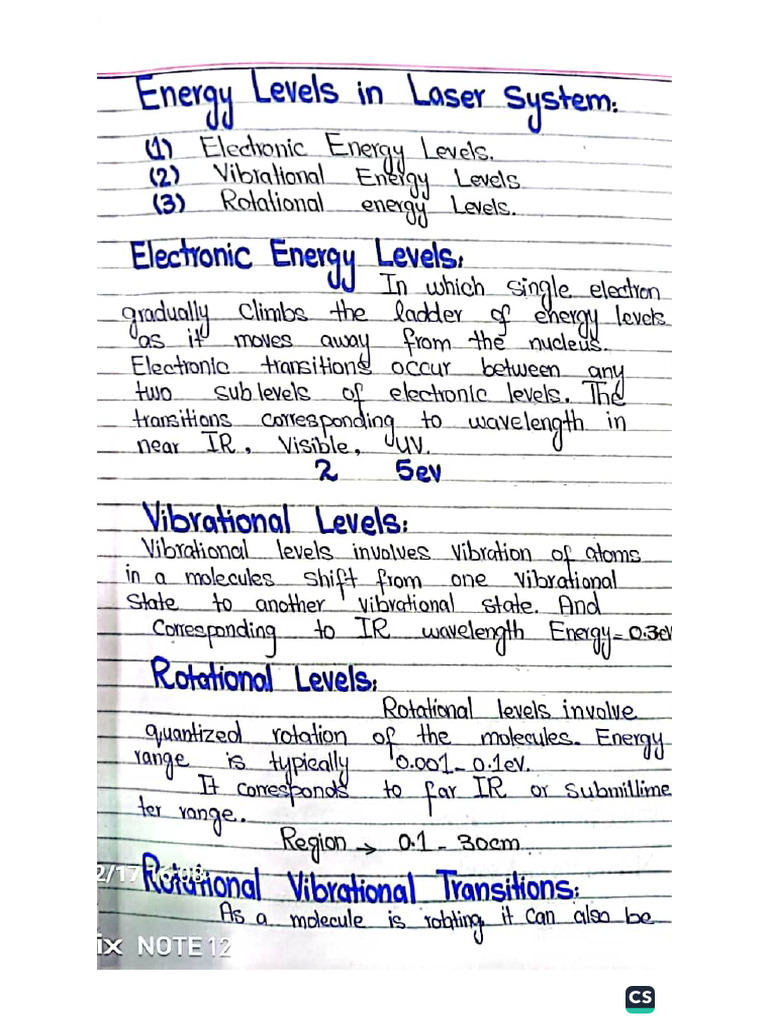 Energy Levels in Laser System:
(1) Electronic Energy Levels.
(2) Vibrational Energy Levels
(3) Rotational energy Levels.
Electronic Energy Levels:
In which single electron
gradually Climbs the ladder of energy levels
as it moves away from the nucleus.
Electronic transitions occur between any
two sublevels of electronic levels. The
transitions corresponding to wavelength in
near IR, Visible, UV.
2 5ev
Vibrational Levels:
Vibrational levels involves vibration of atoms
in a molecules shift from one vibrational
State to another vibrational state. And
Corresponding to IR wavelength Energy=0.3ev
Rotational Levels:
Rotational levels involve
quantized rotation of the molecules. Energy
range is typically 0.001-0.1eV.
It corresponds to far IR or Submillime
ter range.
Region → 0.1-30cm
2/17 16:08
Rotational Vibrational Transitions:
As a molecule is rotating it can also be
ix NOTE 12
CS